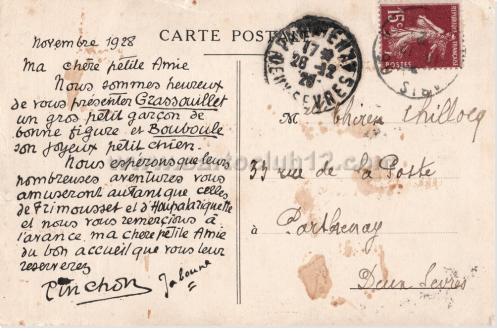 novembre 1928
CARTE POSTALE
Ma chère petite Amie
Nous sommes heureux
de vous présenter Grassouillet
un gros petit garçon de
bonne figure et Bouboule
son joyeux petit chien.
Nous espérons que leurs
nombreuses aventures vous
amuseront autant que celles
de Frimousset et d'Houpalariquette
et nous vous remercions à
l'avance, ma chère petite Amie
du bon accueil que vous leur
reserverez
Pinchon Jaboune
PARTHENAY
17
28-12
28
DEUX-SEVRES
15c
REPUBLIQUE FRANÇAISE
POSTES
M
33 rue de la Poste
à Parthenay
Deux Sevres